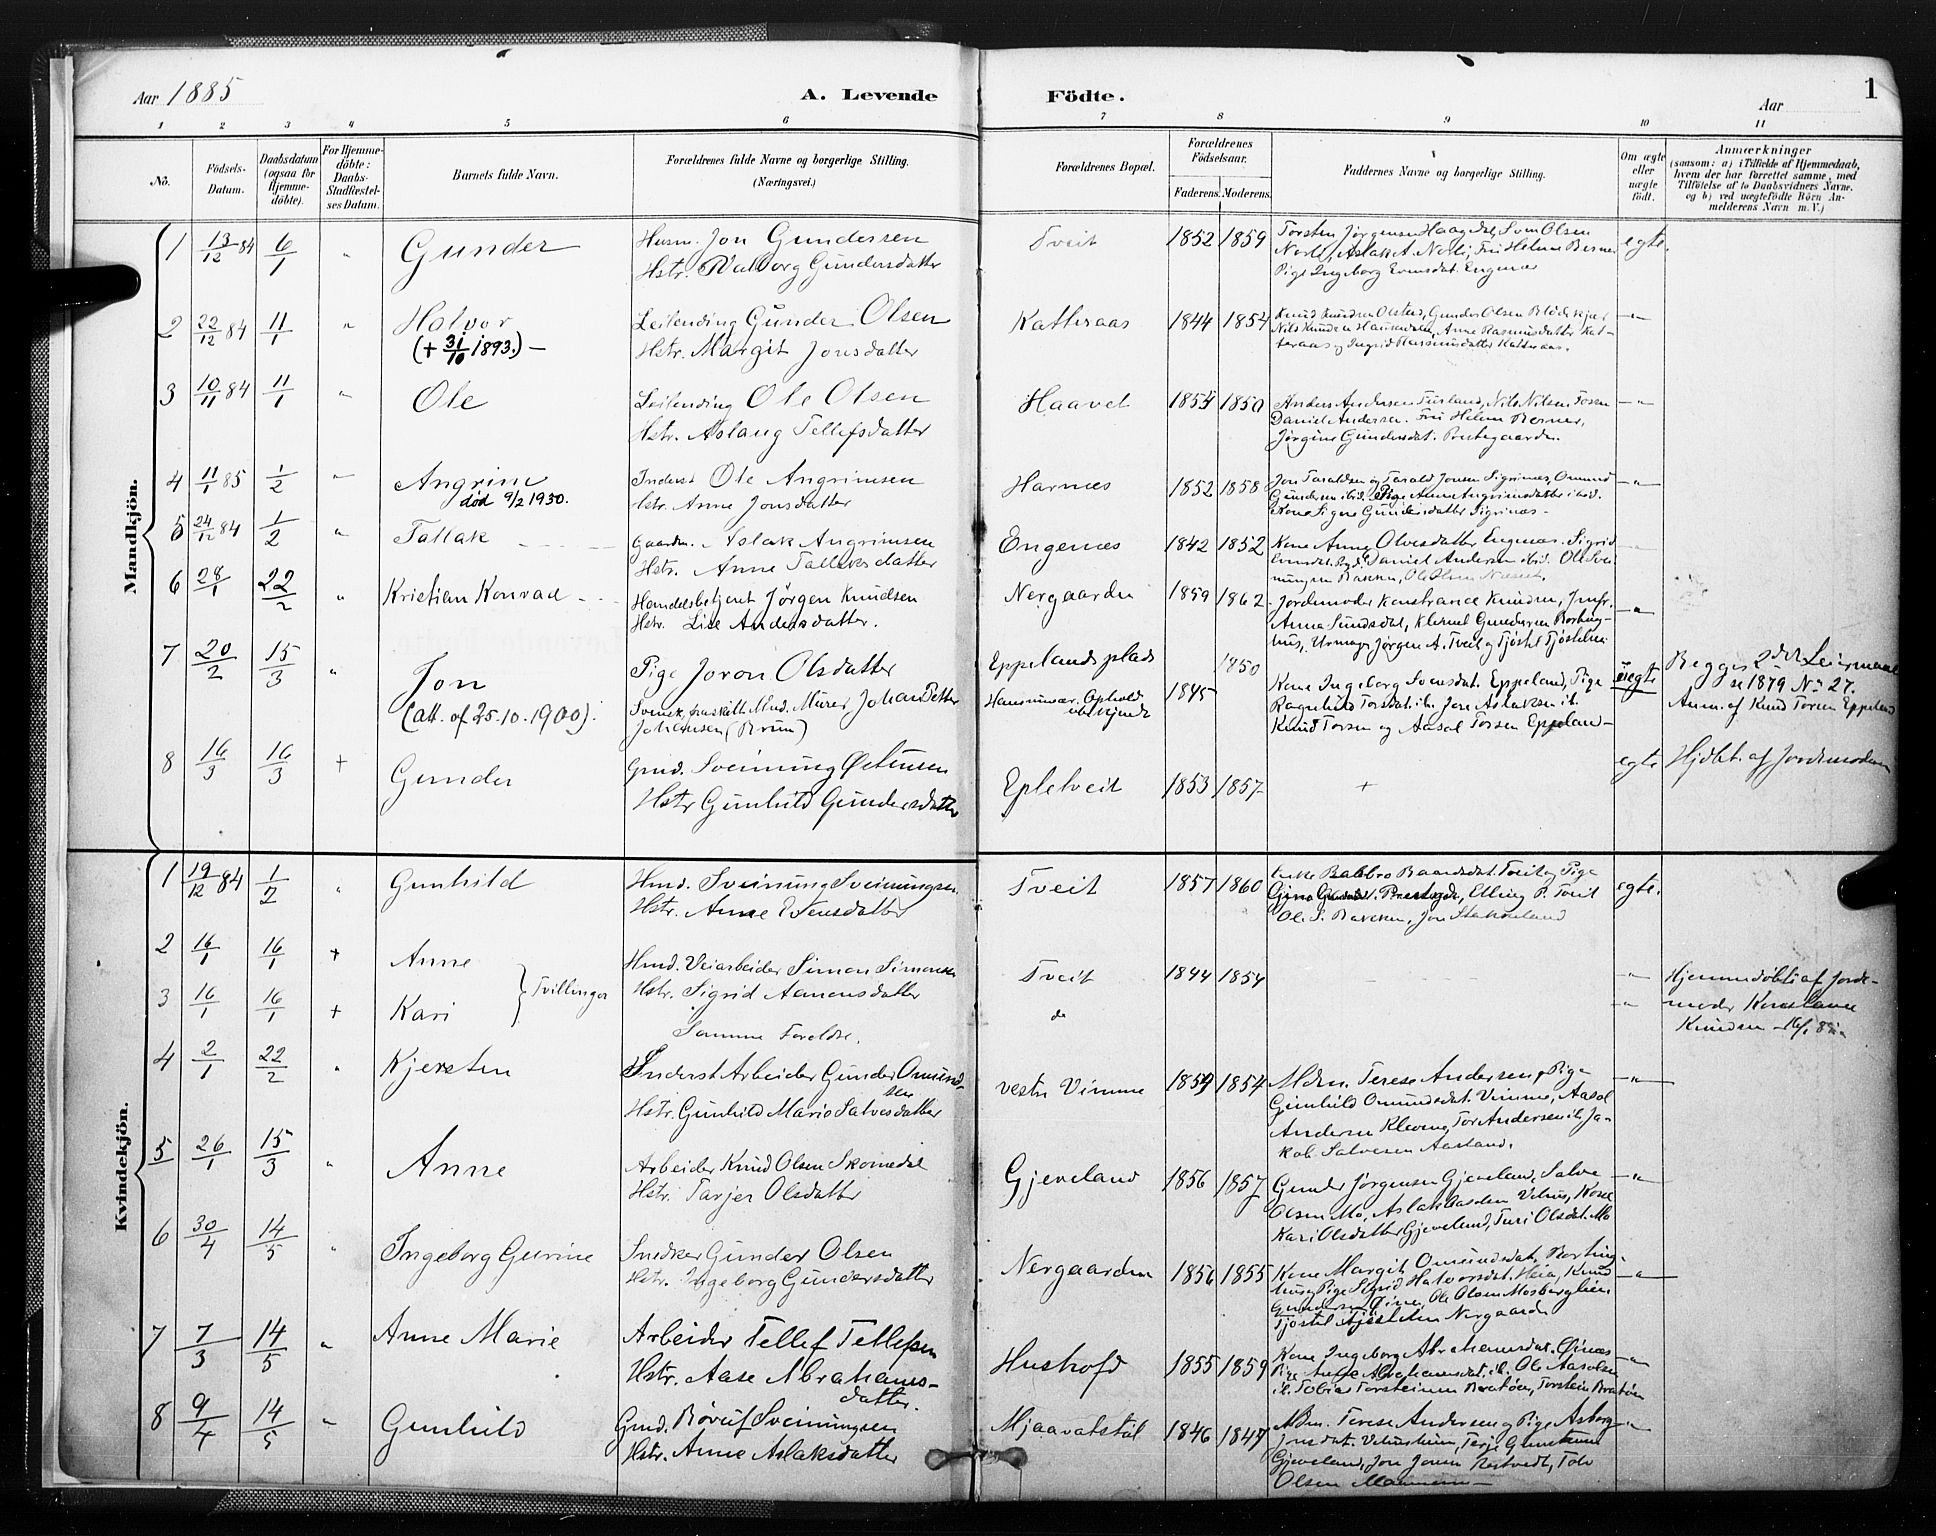 Aar 1885
A. Levende
Födte.
Aar
1
1 2 3 4 5 6 7 8 9 10 11
Nô.
Födsels-Datum.
Daabsdatum (ogsaa för Hjemmedöbte).
For Hjemmedöbte: Daabs-Stadfæstelses Datum.
Barnets fulde Navn.
Forældrenes fulde Navne og borgerlige Stilling. (Næringsvei.)
Forældrenes Bopæl.
Forældrenes Födselsaar.
Faderens. Moderens.
Faddernes Navne og borgerlige Stilling.
Om ægte eller uægte födt.
Anmærkninger
(saasom: a) i Tilfælde af Hjemmedaab, hvem der har forrettet samme, med Tilföielse af to Daabsvidners Navne. og b) ved uægtefödte Börn Anmelderens Navn m. V.)
Mandkjön.
1 13/12 84 6/1 " Gunder
Husm. Jon Gundersen
Hstr. Valborg Gundersdatter
Tveit 1852 1859
Torsten Jørgensen Haagdal, Sven Olsen
Norli, Aslak A. Norli, Fru Helene Berner
Pige Ingeborg Evensdat. Engenæs
egte.
2 22/12 84 11/1 " Halvor
(+ 31/10 1893.) —
Leilending Gunder Olsen
Hstr. Margit Jonsdatter
Katteraas 1844 1854
Knud Knudsen Olstad, Gunder Olsen
Nils Knudsen Anne Rasmusdatter Kat-
teraas og Ingrid Rasmusdatter Katteraas.
—"—
3 10/11 84 11/1 " Ole
Leilending Ole Olsen
Hstr. Aslaug Tellefsdatter
Haavet 1854 1850
Anders Andersen Nils Nilsen Fosen
Daniel Andersen. Fru Helene Berner,
Jørgine Gundersdat. Prestegaarden.
—"—
4 11/1 85 1/2 " Angrim
död 9/2 1930.
Inderst Ole Angrimsen
Hstr. Anne Jonsdatter
Harnæs 1852 1858
Jon Taraldsen og Tarald Jonsen Sigrinæs, Omund
Gundersen ibid. Pige Anne Angrimsdatter ibid.
Kone Signe Gundersdatter Sigrinæs —
—"—
5 24/12 84 1/2 " Tallak
Gaardm. Aslak Angrimsen
Hstr. Anne Tallaksdatter
Engenæs 1842 1852
Kone Anne Olvesdatter Engenæs. Sigrid
Evensdat. Daniel Andersen ibid. Ole Svei-
nungsen Bakken, Ole Olsen
—
6 28/1 22/2 " Kristian Konrad
Handelsbetjent Jörgen Knudsen
Hstr. Lise Andersdatter.
Nergaarden 1859 1862
Jordemoder Konstance Knudsen, Jmfr.
Anna Sundsdal, Klemet Gundersen Borteng-
hus, Urmager Jørgen A. Tveit og Tjöstel Tjöstelsen
—"—
7 20/2 15/3 " Jon
(Att. af 25-10-1900).
Pige Joron Olsdatter
Svensk, fraskilt Md. Murer Johan Petter
Johansen (Brun)
Eppelands plads 1850
Hans nuvær. Ophold ubekjendt 1845
Kone Ingeborg Svensdat. Eppeland, Pige
Ragnhild Torsdat. ib. Jens Aslaksen ib.
Knud Torsen og Aasol Torsen Eppeland —
üegte
Begges 2det Leiermaal
se 1879 No 27.
Anm. af Knud Torsen Eppeland
8 16/3 16/3 + Gunder
Gmd. Sveinung Østensen
Hstr Gunhild Gundersdatter
Epletveit 1853 1857
+
egte
Hjdbt. af Jordemoderen
Kvindekjön.
1 19/12 84 1/2 " Gunhild
Hmd. Sveinung Sveinungsen
Hstr. Anne Evensdatter
Tveit 1857 1860
Enke Babbro Baardsdat. Tveit og Pige
Prestegrd., Elling P. Tveit
Ole S. Bakken, Jon Stakkeland
egte.
2 16/1 16/1 + Anne
3 16/1 16/1 + Kari
Tvillinger
Hmd. Veiarbeider Simon Simonsen
Hstr. Sigrid Aamonsdatter
Samme Foreldre.
Tveit 1844 1854
do
"
"
Hjemmedöbte af Jorde-
moder Konstance
Knudsen 16/1 85
4 2/1 22/2 " Kjersten
Inderst Arbeider Gunder Omund-
sen
Hstr. Gunhild Marie Salvesdatter
vestre Vimme 1859 1854
Mdm. Terese Andersen, Pige
Gunhild Omundsdat. Vimme, Aasol
Andersen Kleveng, Tor Andersen ib, Ja-
kob Salvesen Aasland.
—"—
5 26/1 15/3 " Anne
Arbeider Knud Olsen Skomedal
Hstr. Tarjer Olsdatter
Gjeveland 1856 1857
Gunder Jørgensen Gjeveland, Salve
Olsen Mo, Aslak Kone
Kari Olsdatter Gjeveland, Turi Olsdat. Mo
—"—
6 30/4 14/5 " Ingeborg Gurine
Snedker Gunder Olsen
Hstr. Ingeborg Gundersdatter
Nergaarden 1856 1855
Kone Margit Omundsdat. Borteng-
hus, Pige Sigrid Halvorsdat. Heia, Knud
Gundersen Ole Olsen Mosberglien
Tjöstel Tjöstelsen Nergaarden
—"—
7 7/3 14/5 " Anne Marie
Arbeider Tellef Tellefsen
Hstr. Aase Abrahams-
datter.
Hushofd 1855 1859
Kone Ingeborg Abrahamsdat. Øinæs
Pige Abrahamsdat. ib. Ole Aasolsen
ib. Tobias Torsteinsen Bratöen, Torstein Bratöen
—"—
8 9/4 14/5 " Gunhild
Gmd. Rörulf Sveinungsen
Hstr. Anne Aslaksdatter
Mjaavatstöl 1846 1847
Mdm. Terese Andersen og Pige Asborg
Jonsdat. Terje
Gjeveland, Jon Jonsen Tolv
Olsen —
"